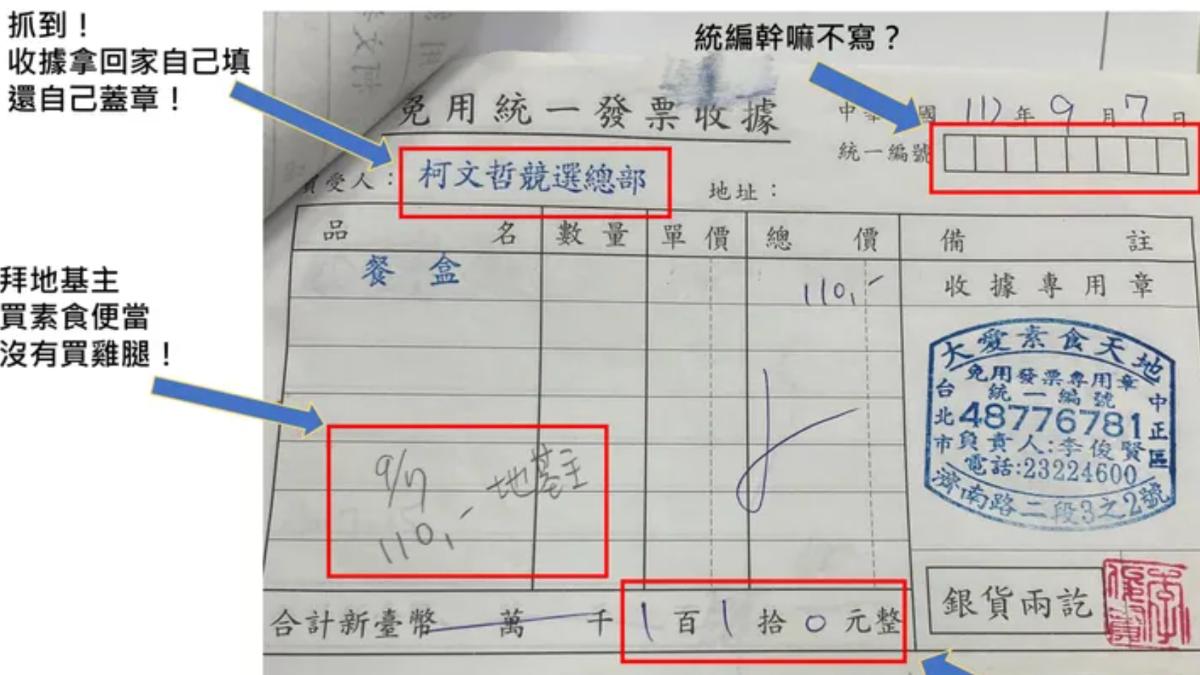 抓到！
收據拿回家自己填
還自己蓋章！
統編幹嘛不寫？
拜地基主
買素食便當
沒有買雞腿！
免用統一發票收據
中華 國 112年9月7日
統一編號
受人：柯文哲競選總部 地址：
品名 數量 單價 總價 備註
餐盒 110,-
收據專用章
大愛素食天地
免用發票專用章
統一編號
48776781
負責人:李俊賢
電話:23224600
台北市 中正區
濟南路二段3之2號
9/7 地基主
110,-
合計新臺幣 萬 千 1百1拾0元整
銀貨兩訖